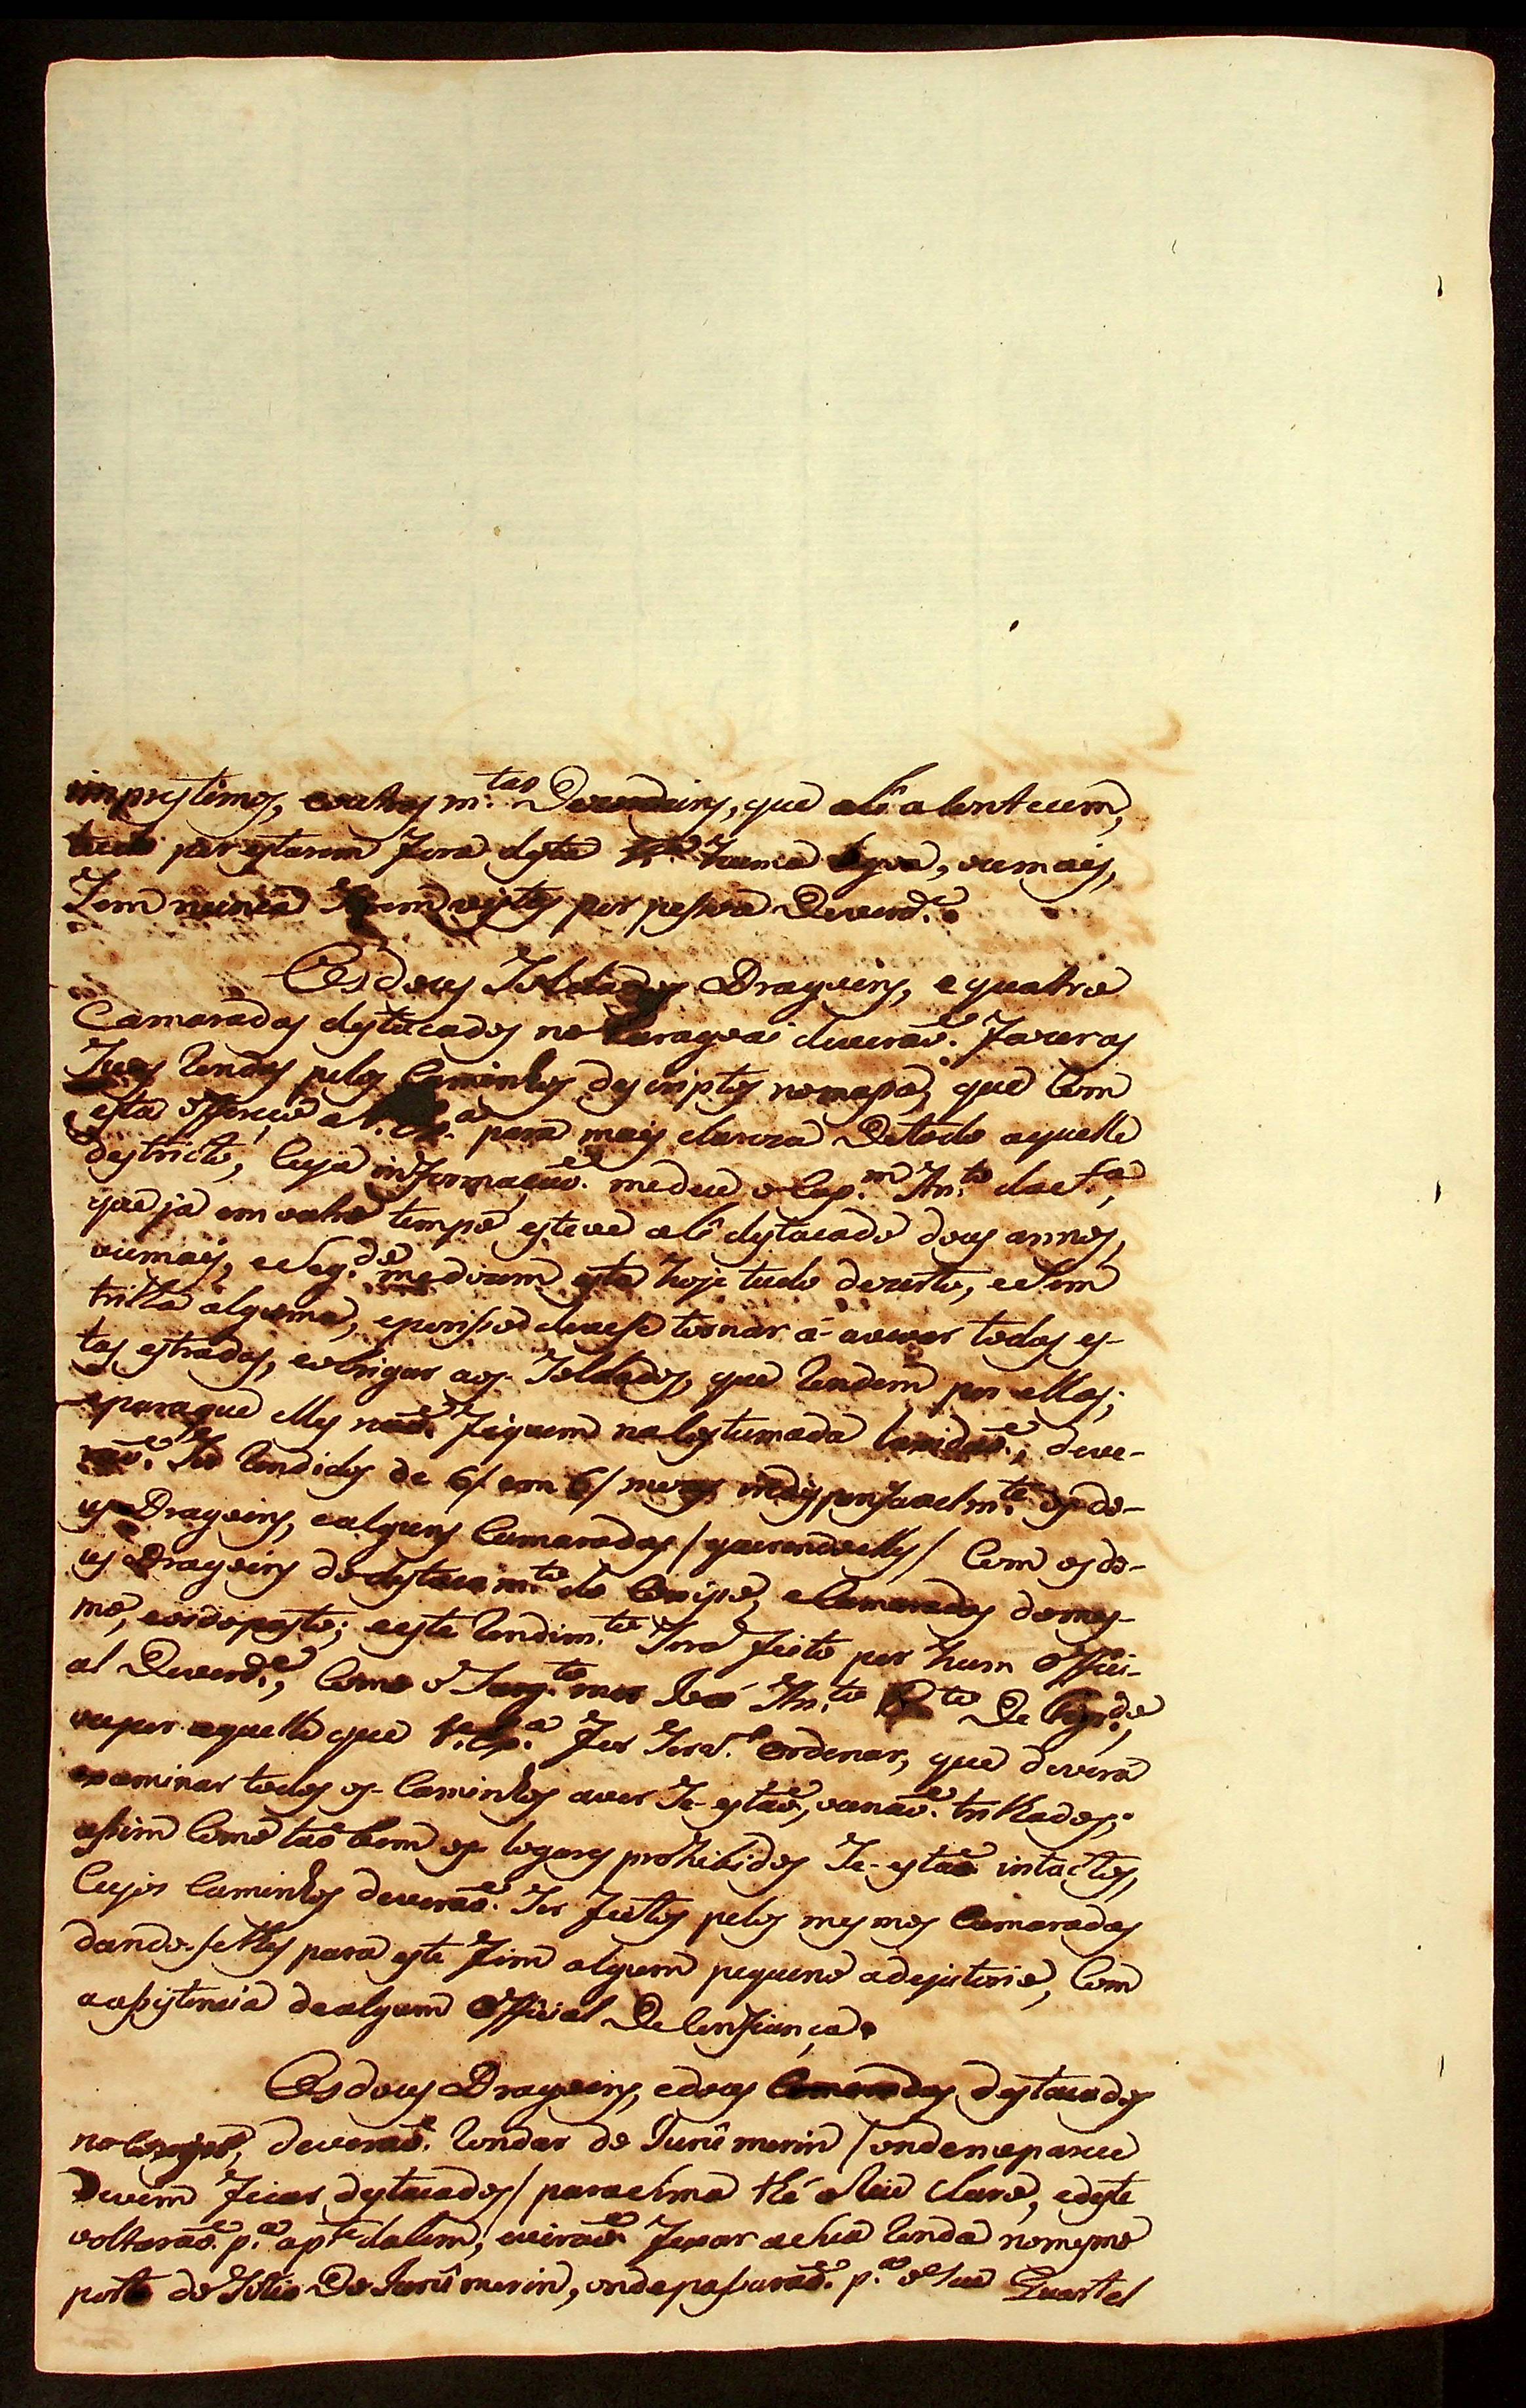 imprestimos, eoutras m.tas Dezordeins, que alî a Contecem,
tudo por estarem fora desta V.ª huma Legoa, oumais,
Sem nunca Serem vistos por pessoa Decend.e
Os dous Soldados Dragoeins, e quatro
Camaradas destacados no Paragoai deverão fazer as
Suas Rondas pelos Caminhos descriptos nomapa, que Com
esta offereco a V. Ex.ª para mais clareza Detodo aquelle
destricto, Cuja informacaõ medeu o Cap.m An.to
que ja em outro tempo esteve alî destacado dous annos,
oumais, e Seg.do medizem esta hoje tudo dezerto, e Sem
trilha alguma, eporisso devese tornar á avivar todas es-
tas estradas, eobrigar aos Soldados, que Rondem por ellas;
eparaque elles naõ fiquem naCostumada Ociozidaõ, deve-
raõ Ser Rendidos de 6/ em 6/ mezes indispensavelm.te os do-
us Dragoeins, ealguns Camaradas / querendoelles / Com os do-
us Dragoeins dodestacam.to do Corijo, eCamaradas domes-
mo, eordoposto; eeste Rendim.to Sera feito por hum Offici-
al Decend.e, Como o Sarg.to mor Jozé An.to De
ouper aquelle que V. Ex.ª for Servido ordenar, que deverá
examinar todos os Caminhos aver Se estaõ, ounaõ trilhados;
assim Como taõ bem os lugares prohibidos Se estaõ intactos,
Cujos Caminhos deveraõ Ser feitos pelos mesmos Camaradas
dandoselhes para este fim algum pequeno adejutorio, Com
aassistencia dealgum Official DeConfiança.
Os dous Dragoeins, edous Camaradas destacados
no deveraõ Rondar do Jurûmerin / ondemeparece
Devem ficar destacados / paracima thé o Rio Claro, edeste
voltaraõ p.ª ap.te dalem, eviraõ fexar aSua Ronda nomesmo
porto do Sitio Do Jurûmerin, ondepassaraõ p.ª oSeu Quartel